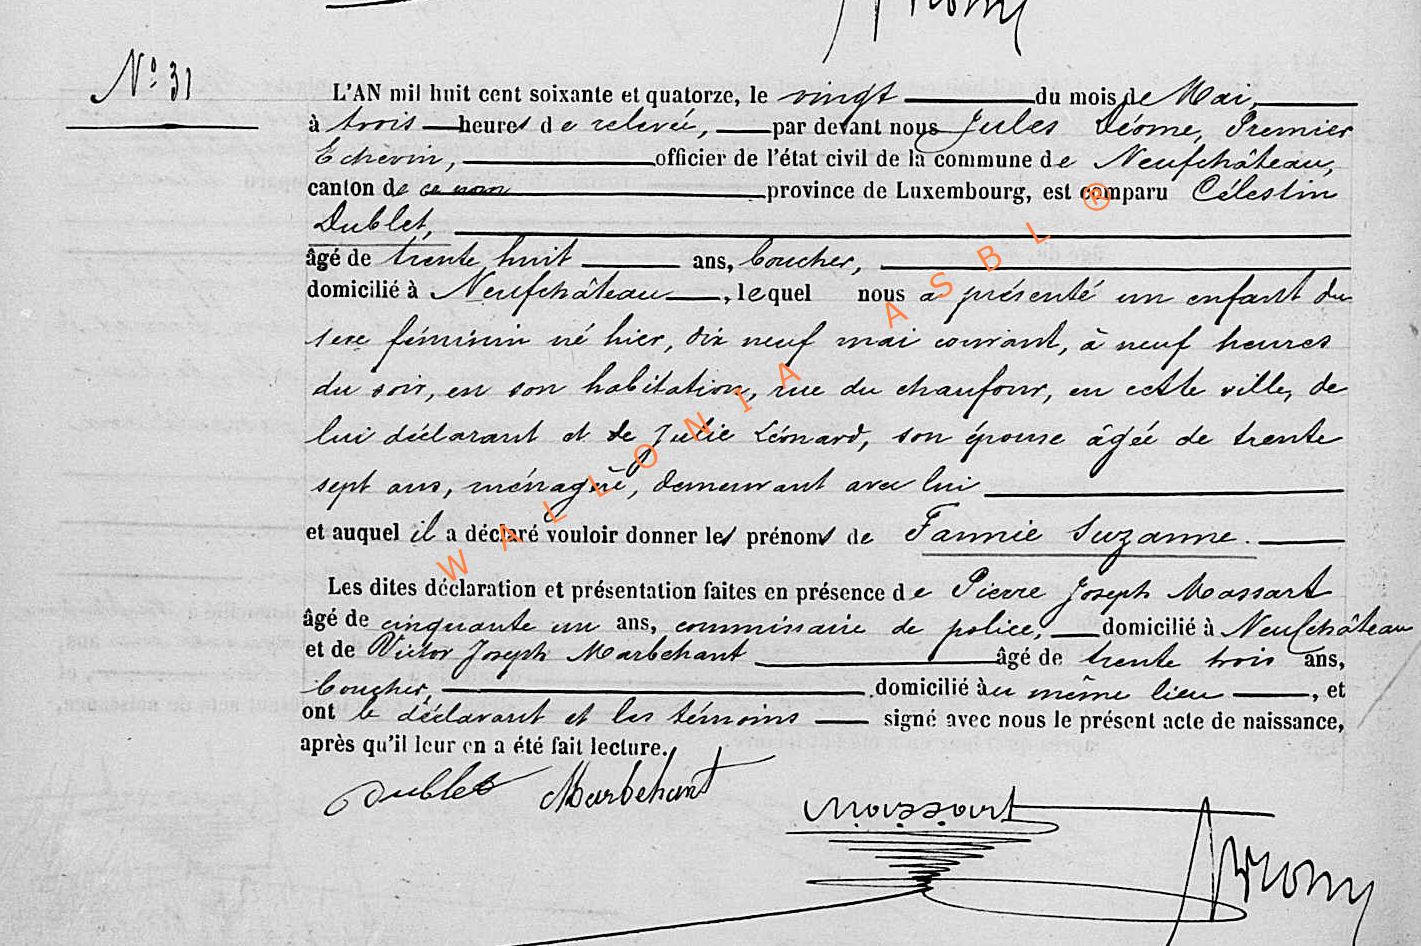 N° 31
L'AN mil huit cent soixante et quatorze, le vingt du mois de Mai,
à trois heures de relevée, par devant nous Jules Déome, Premier
Echevin, officier de l'état civil de la commune de Neufchâteau,
canton de ce nom province de Luxembourg, est comparu Célestin
Dublet,
âgé de trente huit ans, boucher,
domicilié à Neufchâteau, lequel nous a présenté un enfant du
sexe féminin né hier, dix neuf mai courant, à neuf heures
du soir, en son habitation, rue du chaufour, en cette ville, de
lui déclarant et de Julie Léonard, son épouse âgée de trente
sept ans, ménagère, demeurant avec lui
et auquel il a déclaré vouloir donner les prénoms de Fannie Suzanne.
Les dites déclaration et présentation faites en présence de Pierre Joseph Massart
âgé de cinquante un ans, commissaire de police, domicilié à Neufchâteau
et de Victor Joseph Marbehant âgé de trente trois ans,
boucher, domicilié au même lieu, et
ont le déclarant et les témoins signé avec nous le présent acte de naissance,
après qu'il leur en a été fait lecture.
Dublet Marbehant
Massart
WALLONIA ASBL ®